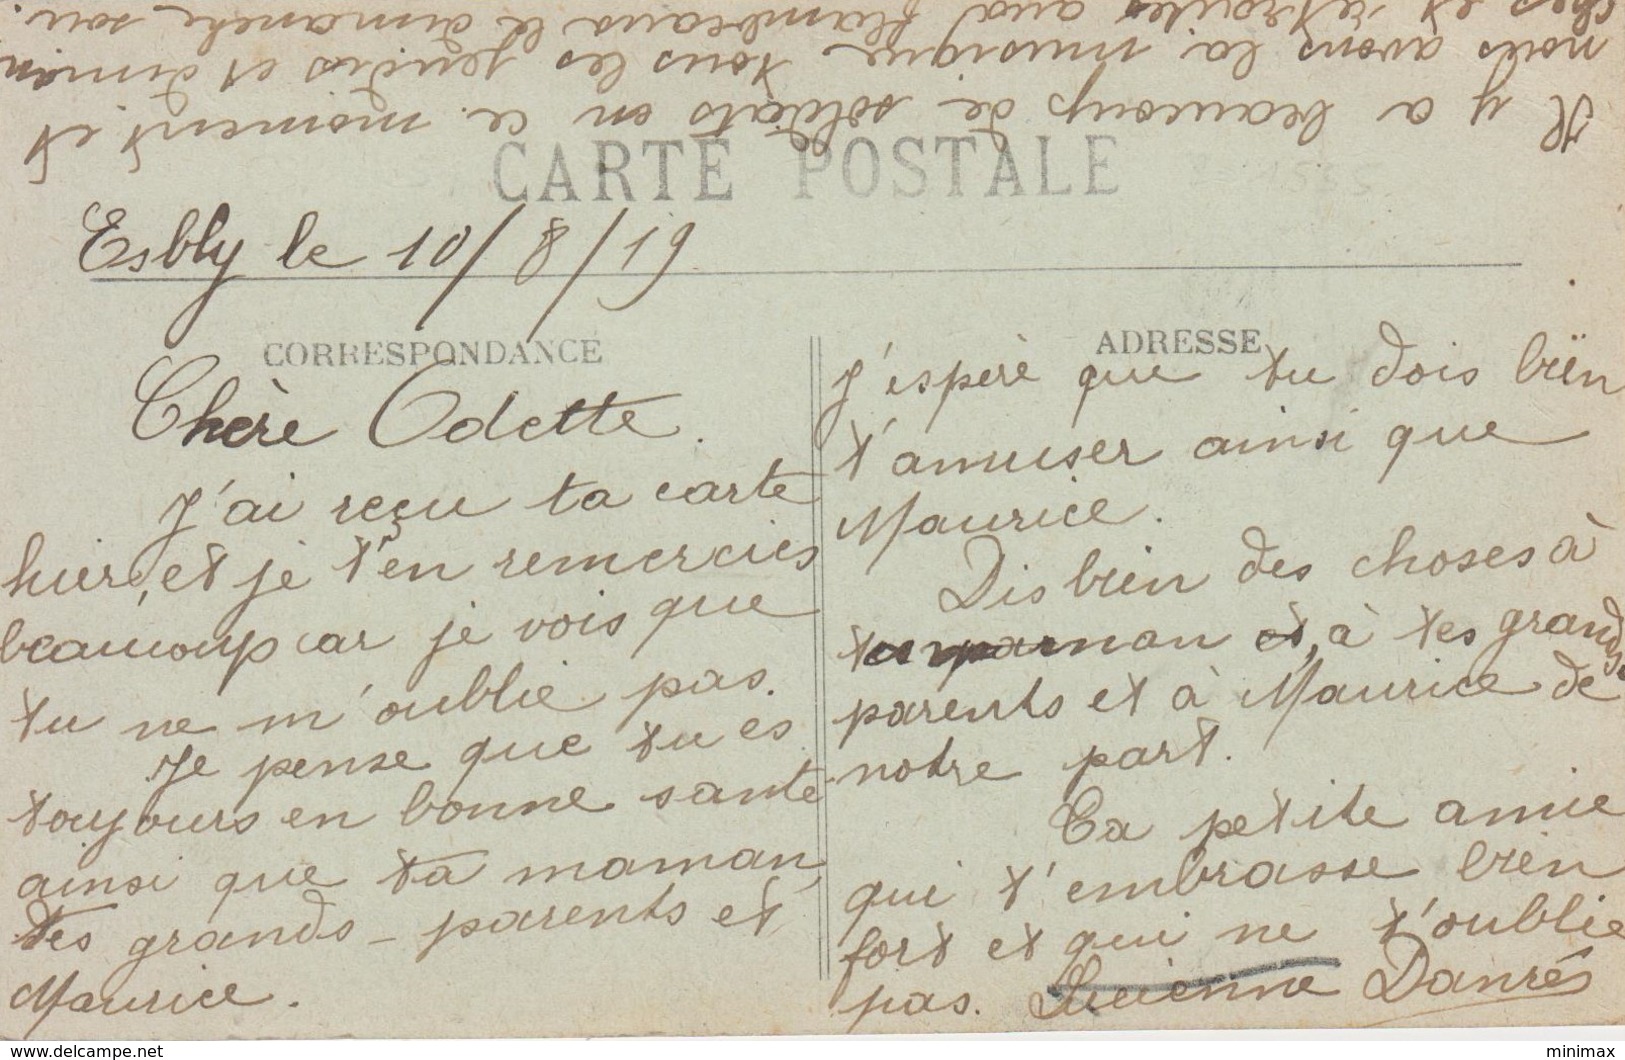 CARTE POSTALE
Esbly le 10/8/19
CORRESPONDANCE
Chère Odette.
J'ai reçu ta carte
hier, et je t'en remercies
beaucoup car je vois que
tu ne m'oublie pas.
Je pense que tu es
toujours en bonne santé
ainsi que ta maman,
tes grands-parents et
Maurice.
ADRESSE
J'espère que tu dois bien
t'amuser ainsi que
Maurice.
Dis bien des choses à
ta maman et, à tes grands
parents et à Maurice de
notre part.
Ta petite amie
qui t'embrasse bien
fort et qui ne t'oublie
pas. Lucienne Danrés
Il y a beaucoup de soldats en ce moment et
nous avons la musique tous les jeudis et diman
ches et retraites aux flambeaux le dimanche soir.
www.delcampe.net
minimax